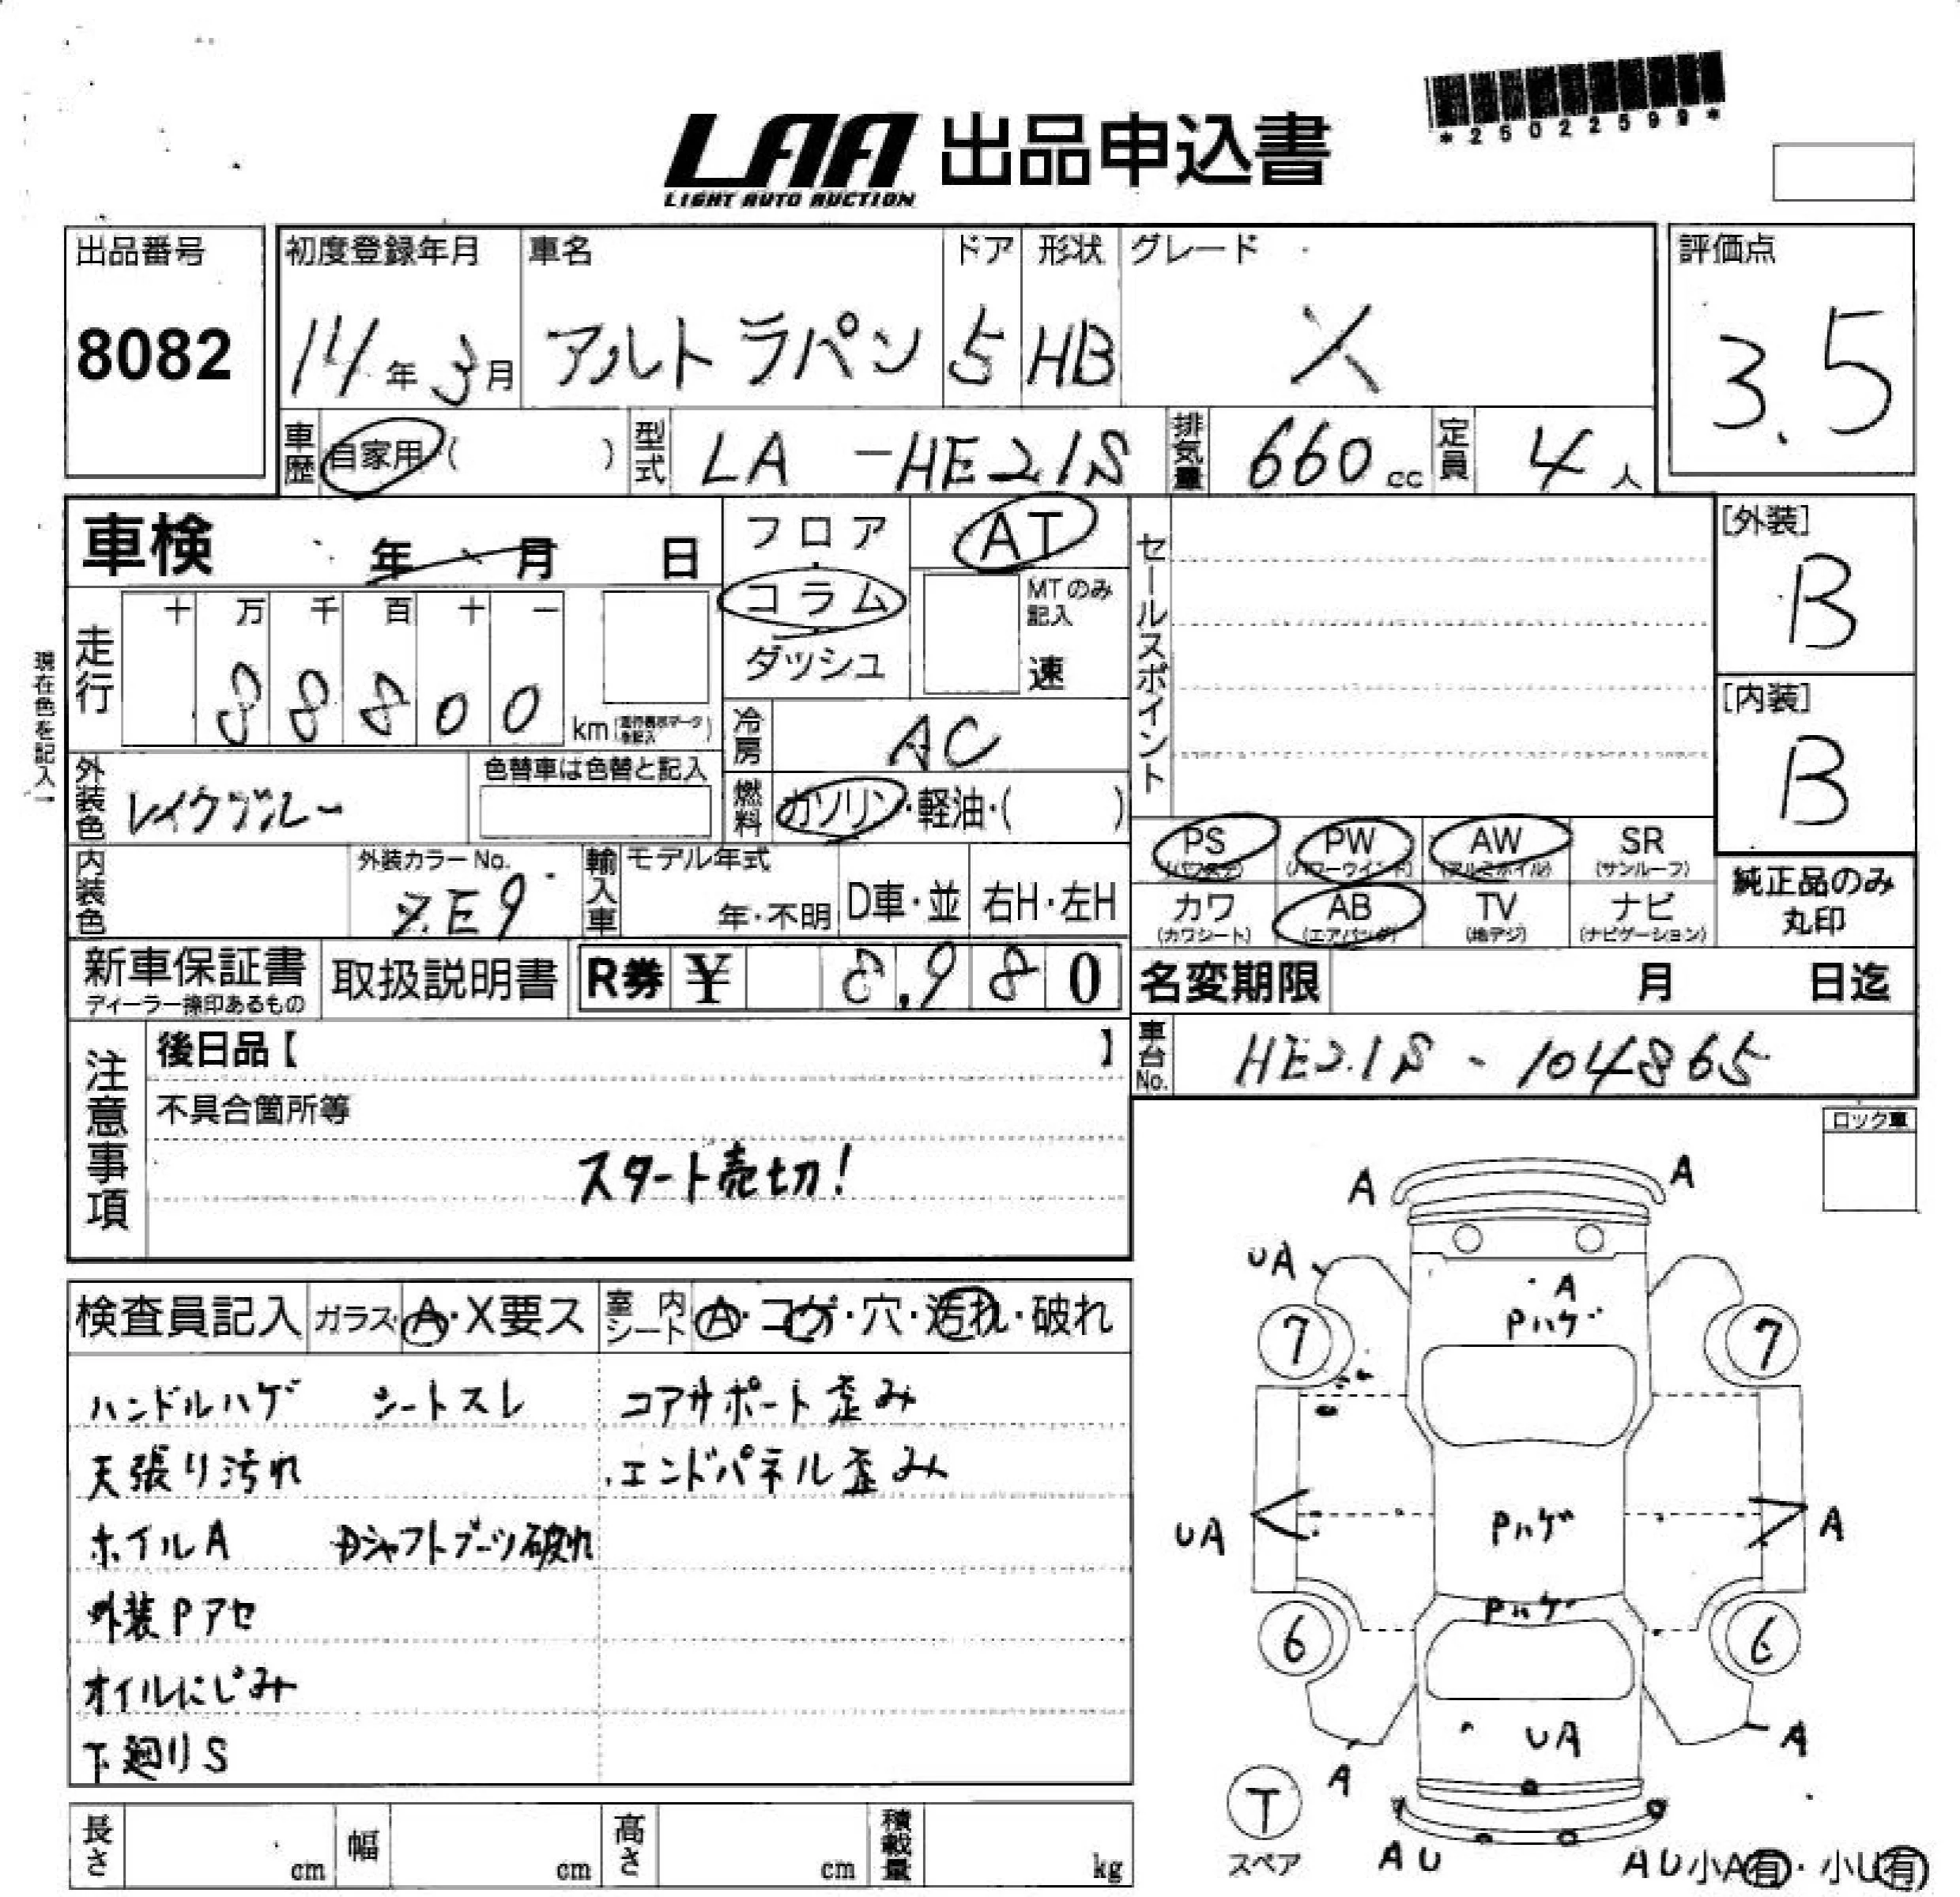 *25022599*
LAA 出品申込書
LIGHT AUTO AUCTION
出品番号 初度登録年月 車名 ドア 形状 グレード 評価点
8082 14年 3月 アルト ラパン 5 HB X 3.5
車歴 自家用 ( ) 型式 LA -HE21S 排気量 660 cc 定員 4 人
車検 年 月 日 フロア AT セールスポイント [外装]
B
コラム MTのみ記入
ダッシュ 速
走行 十 万 千 百 十 一
8 8 8 0 0 km
現在色を記入
[内装]
B
冷房 AC
外装色 レイクブルー 色替車は色替と記入 燃料 ガソリン・軽油・( )
PS PW AW SR
(パワステ) (パワーウインド) (アルミホイル) (サンルーフ)
内装色 外装カラーNo. ZE9 輸入車 モデル年式 年・不明 D車・並 右H・左H
カワ AB TV ナビ
(カワシート) (エアバッグ) (地デジ) (ナビゲーション)
純正品のみ
丸印
新車保証書 取扱説明書 R券 ¥ 8,980 名変期限 月 日迄
ディーラー捺印あるもの
注意事項 後日品【 】 車台No. HE21S - 104865
不具合箇所等
スタート売切!
ロック車
検査員記入 ガラス A・X要ス 室内シート A・コゲ・穴・汚れ・破れ
ハンドルハゲ シートスレ コアサポート歪み
天張り汚れ エンドパネル歪み
ホイルA Dシャフトブーツ破れ
外装Pアセ
オイルにじみ
下廻りS
A A
UA A
Pハゲ
7 7
UA Pハゲ A
Pハゲ
6 6
UA A
A
T
スペア
AU AU 小A有・小U有
長さ cm 幅 cm 高さ cm 積載量 kg